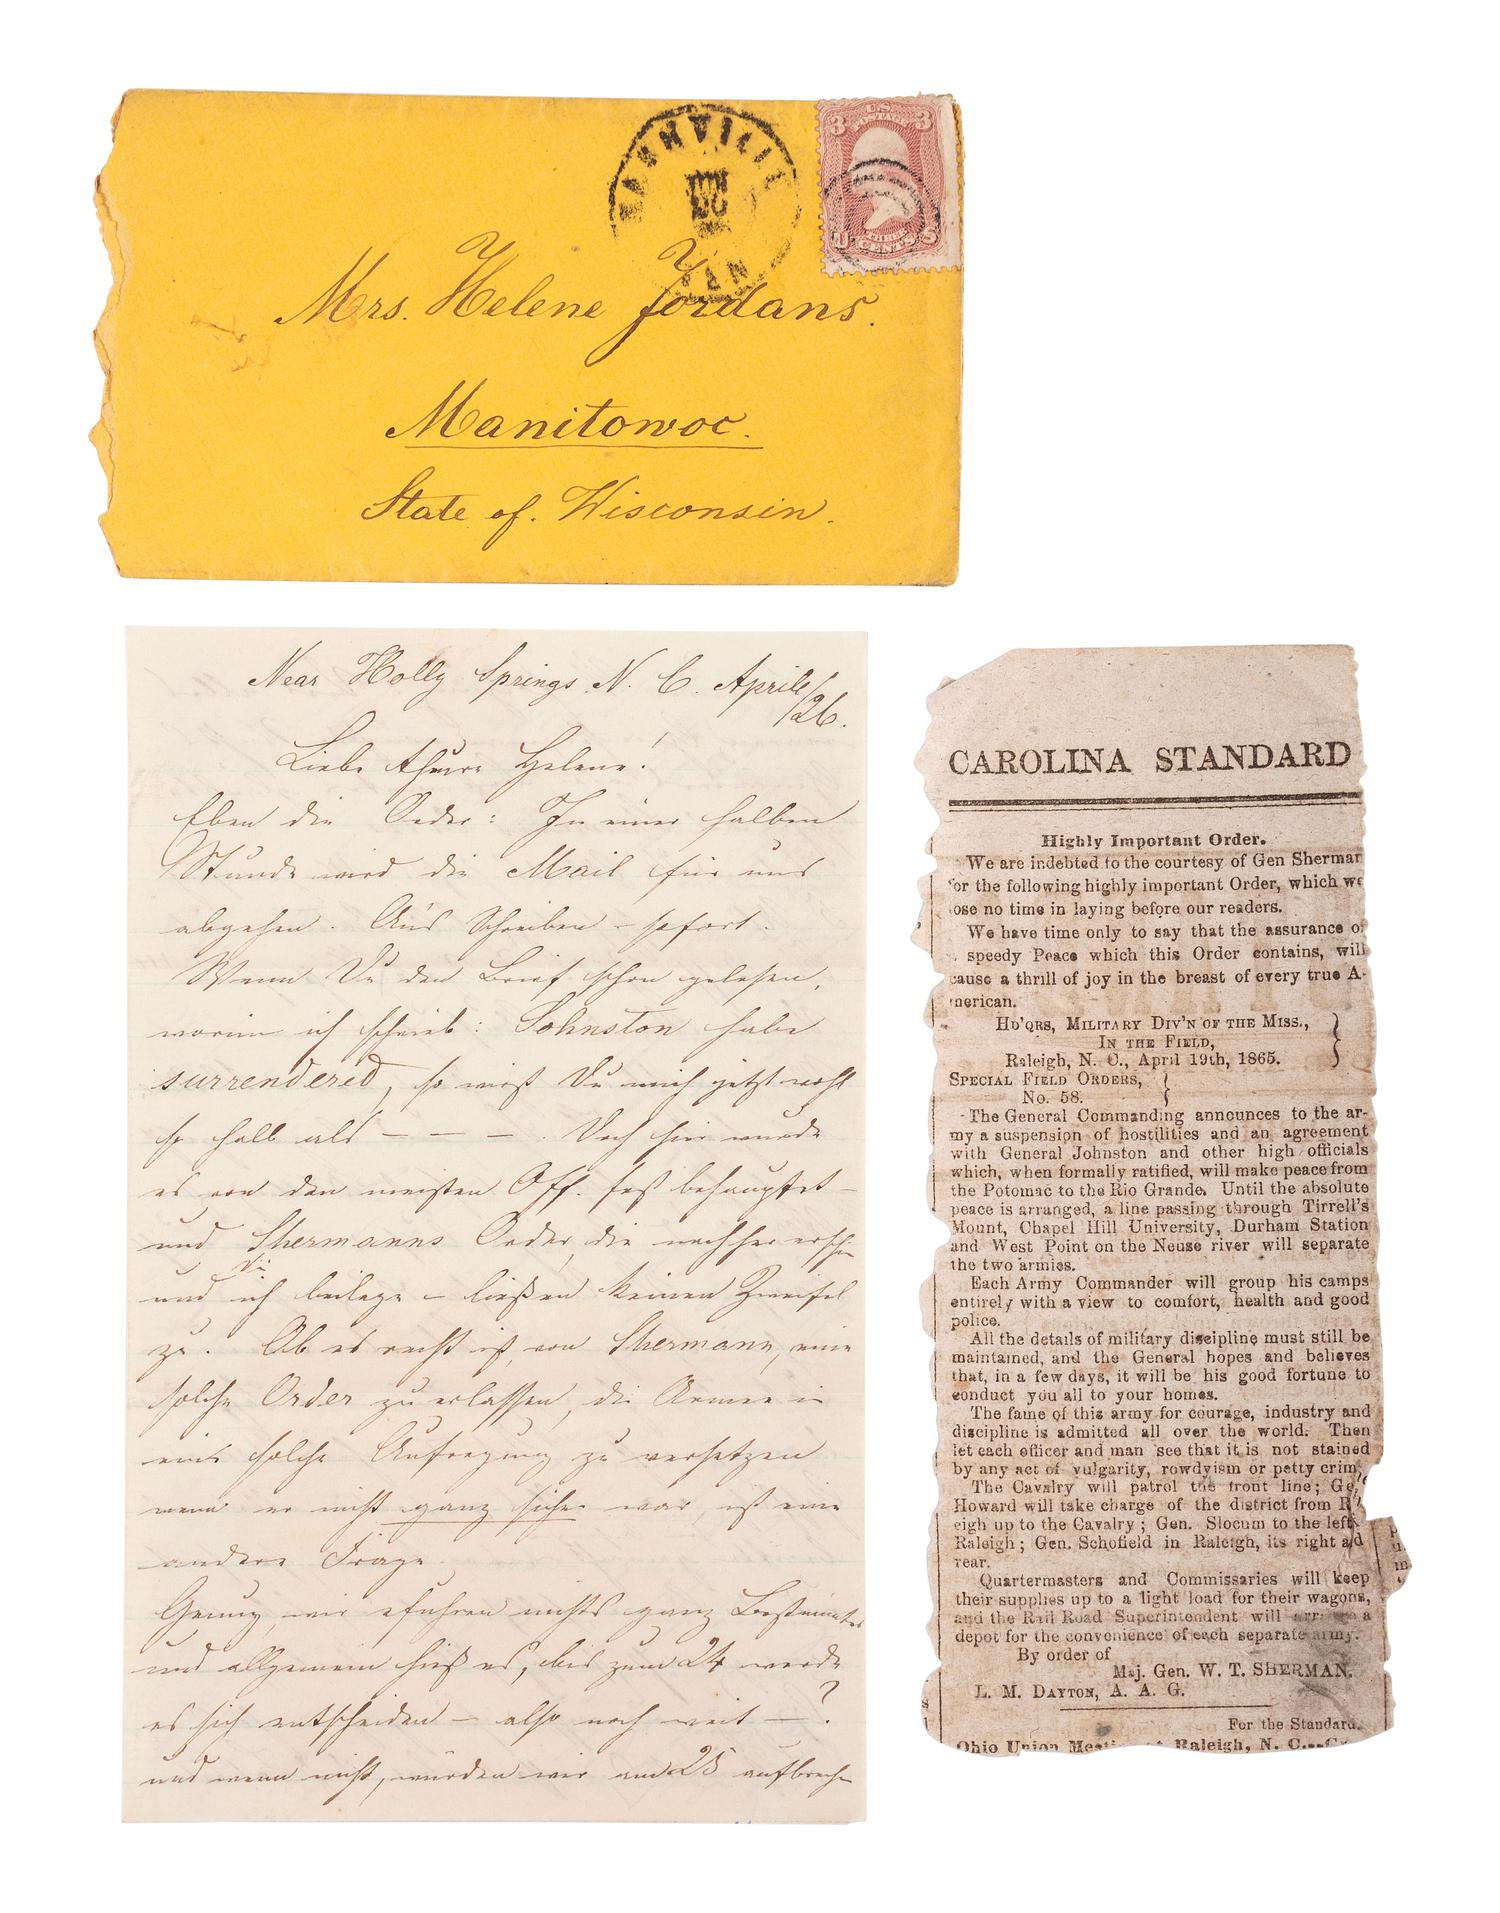 NASHVILLE
TEN
U.S.
POSTAGE
3 3
U CENTS S
Mrs. Helene Jördans.
Manitowoc.
State of. Wisconsin.
Near Holly Springs N. C. Aprile/26.
Liebe theure Helene!
Eben die Order: In einer halben
Stunde wird die Mail für uns
abgehen. Also Schreiben – sofort.
Wenn Du den Brief schon gelesen,
worin ich schrieb: Johnston habe
surrendered, so wirst Du mich jetzt wohl
so halb als – – – . Doch hier wurde
es von den meisten Off. fest behauptet –
und Shermanns Order, die nachher erschien
und ich Dir beilege – ließen keinen Zweifel
zu. Ob es recht ist, von Shermann, eine
solche Order zu erlassen, die Armee in
eine solche Aufregung zu versetzen
wenn er nicht ganz sicher war, ist eine
andere Frage.
Genug, wir erfuhren nichts ganz Bestimmtes
und allgemein hieß es, bis zum 24 werde
es sich entscheiden – also noch weit – ?
und wenn nicht, würden wir am 25 aufbrechen
CAROLINA STANDARD
Highly Important Order.
We are indebted to the courtesy of Gen Sherman
for the following highly important Order, which we
ose no time in laying before our readers.
We have time only to say that the assurance of
speedy Peace which this Order contains, will
cause a thrill of joy in the breast of every true A-
merican.
HD'QRS, MILITARY DIV'N OF THE MISS.,
IN THE FIELD,
Raleigh, N. C., April 19th, 1865.
SPECIAL FIELD ORDERS,
No. 58.
The General Commanding announces to the ar-
my a suspension of hostilities and an agreement
with General Johnston and other high officials
which, when formally ratified, will make peace from
the Potomac to the Rio Grande. Until the absolute
peace is arranged, a line passing through Tirrell's
Mount, Chapel Hill University, Durham Station
and West Point on the Neuse river will separate
the two armies.
Each Army Commander will group his camps
entirely with a view to comfort, health and good
police.
All the details of military discipline must still be
maintained, and the General hopes and believes
that, in a few days, it will be his good fortune to
conduct you all to your homes.
The fame of this army for courage, industry and
discipline is admitted all over the world. Then
let each officer and man see that it is not stained
by any act of vulgarity, rowdyism or petty crim
The Cavalry will patrol the front line; Ge
Howard will take charge of the district from R
eigh up to the Cavalry; Gen. Slocum to the left
Raleigh; Gen. Schofield in Raleigh, its right a d
rear.
Quartermasters and Commissaries will keep
their supplies up to a light load for their wagons,
and the Rail Road Superintendent will arrange a
depot for the convenience of each separate army.
By order of
Maj. Gen. W. T. SHERMAN.
L. M. DAYTON, A. A. G.
For the Standard.
Ohio Union Meeti Raleigh, N. C.